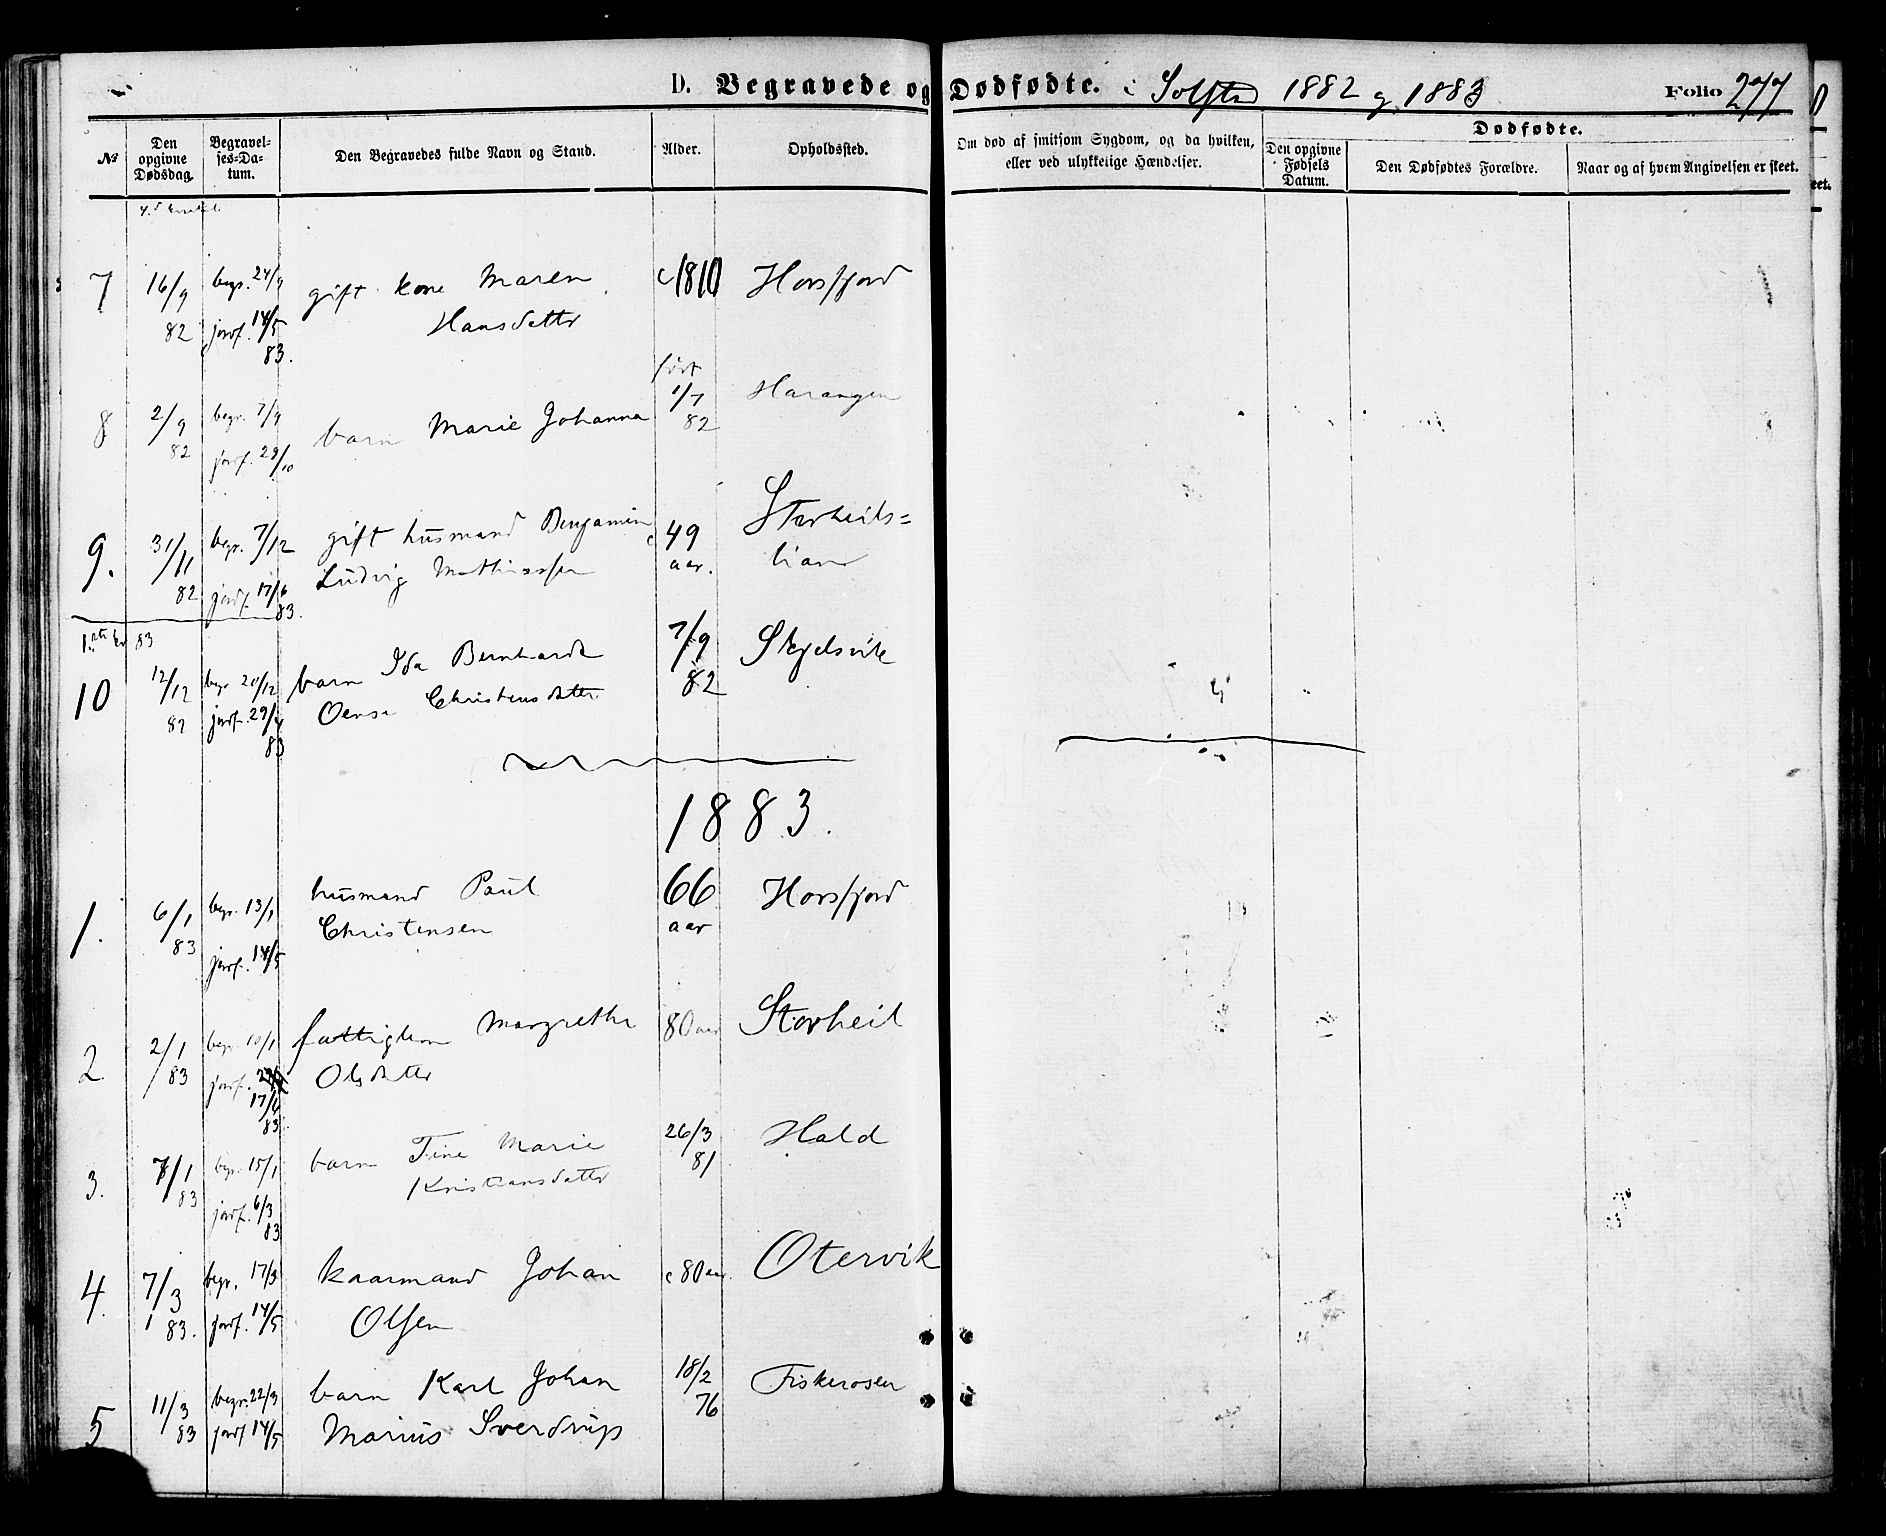 D. Begravede og Dødfødte. i Solstad 1882 og 1883 Folio 277
№
Den opgivne Dødsdag.
Begravelses-Datum.
Den Begravedes fulde Navn og Stand.
Alder.
Opholdssted.
Om død af smitsom Sygdom, og da hvilken,
eller ved ulykkelige Hændelser.
Dødfødte.
Den opgivne Fødsels Datum.
Den Dødfødtes Forældre.
Naar og af hvem Angivelsen er skeet.
7 16/9 82 begr. 24/9 gift kone Maren c 1810 Horsfjord
jordf. 14/5 83. Hansdatter
8 2/9 82 begr. 7/9 barn Marie Johanna født 1/7 82 Harangen
jordf. 29/10
9. 31/11 82 begr. 7/12 gift husmand Benjamin 49 Storheils=
jordf. 17/6 83. Ludvig Mathiassen aar. lian
83
10 12/12 82 begr 20/12 barn Ida Bernharda 7/9 82 Skjelsvik
jordf. 29/4 83 Olense Christensdatter
1883.
1. 6/1 83 begr. 13/1 husmand Paul 66 Horsfjord
jordf. 14/5 Christensen aar
2. 2/1 83 begr. 10/1 fattiglem Margrethe 80 aar Storheil
jordf. 17/6 83 Olsdatter
3. 7/1 83 begr. 15/1 barn Tine Marie 26/3 81 Hald
jordf. 6/3 83 Kristiansdatter
4. 7/3 83. begr. 17/3 kaarmand Johan c 80 aar. Otervik
jordf. 14/5 Olsen
5 11/3 83 begr. 22/3 barn Karl Johan 18/2 76 Fiskerosen
jordf 14/5 Marius Sverdrup